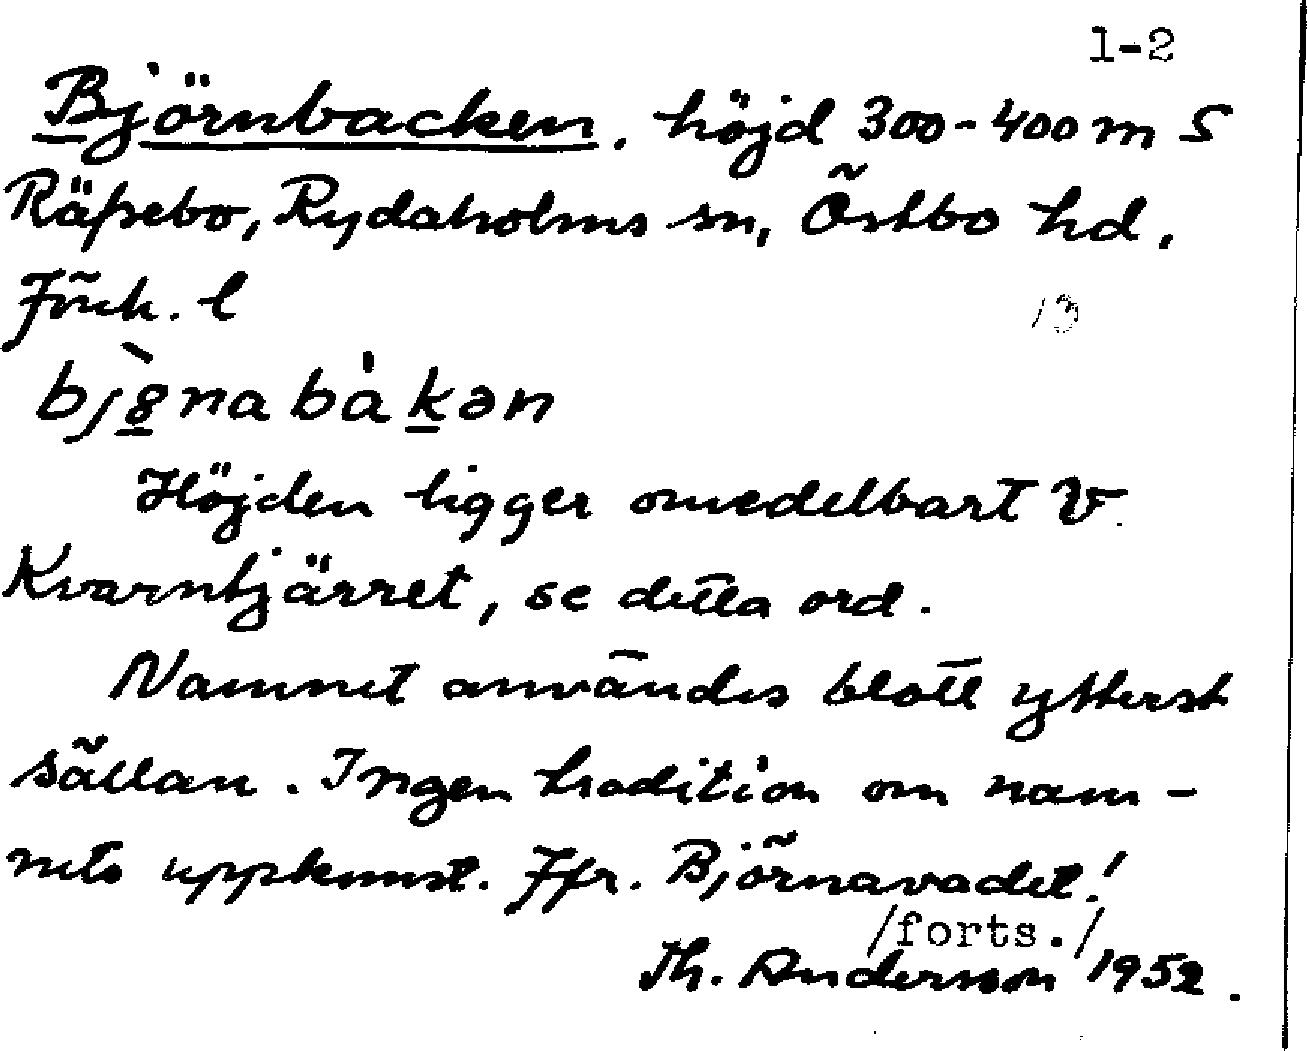 1-2
Björnbacken. höjd 300-400 m S
Räpsebo, Rydaholms sn, Östbo hd,
Jönk. l
13
bjȯ̀nabàkən
Höjden ligger omedelbart V
Kvarntjärret, se detta ord.
Namnet användes blott ytterst
sällan. Ingen tradition om nam-
nets uppkomst. Jfr. Björnavadet!
/forts./
Th. Anderson 1952.